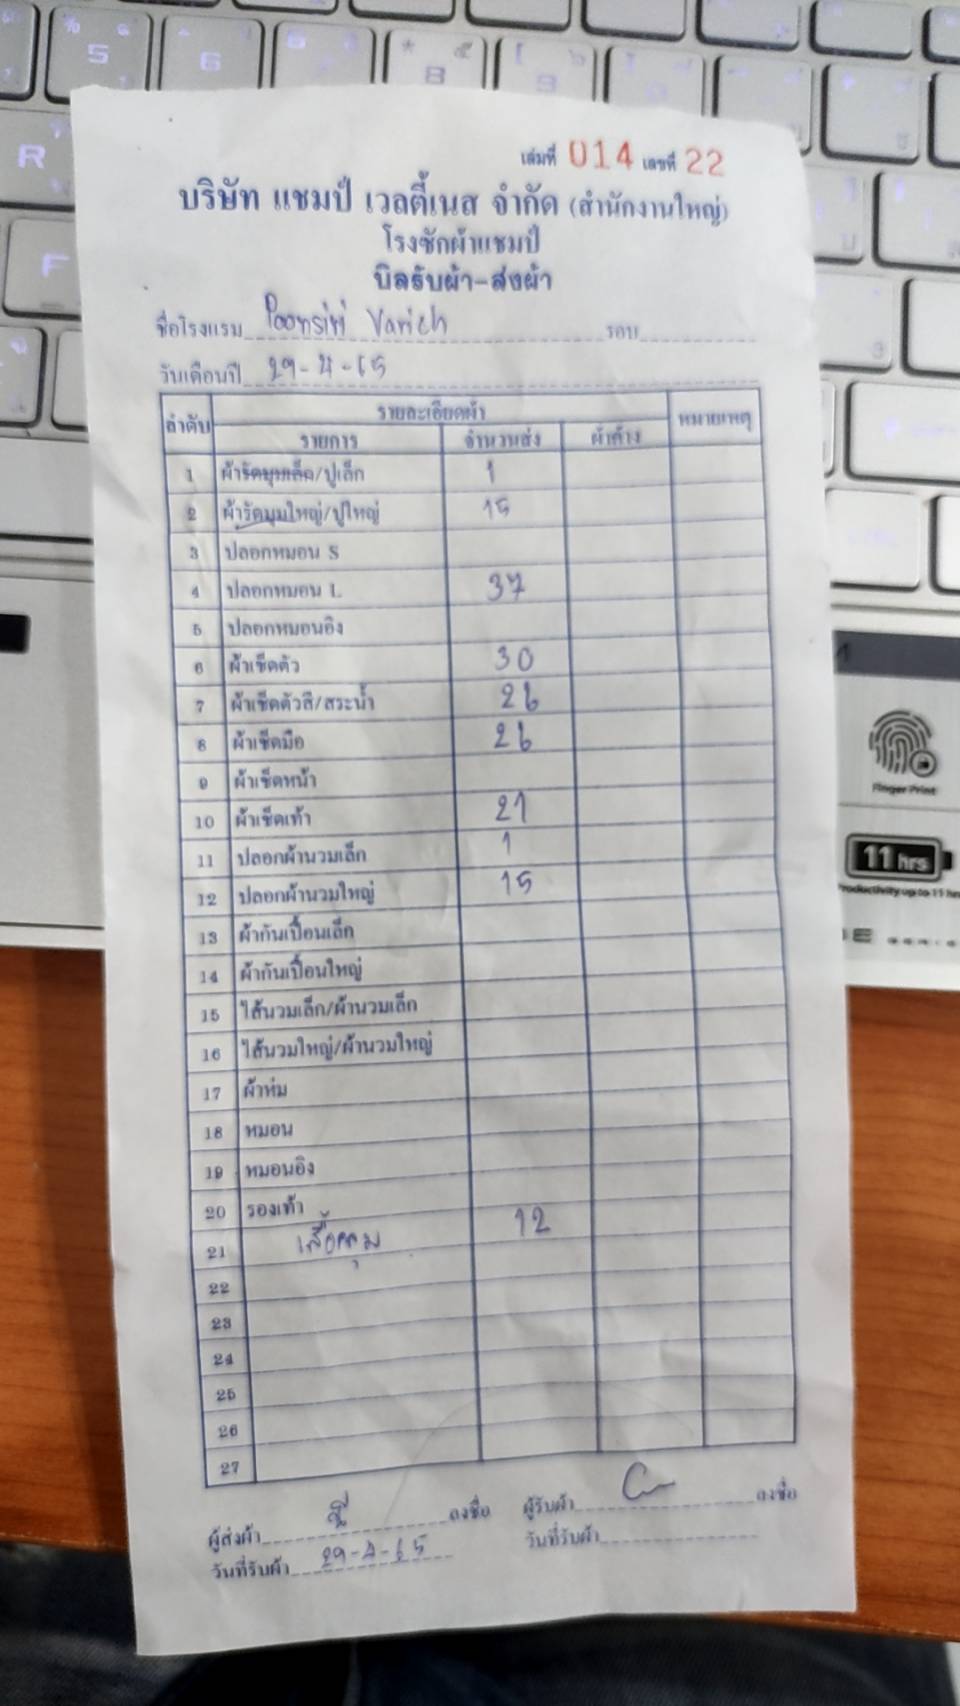 เล่มที่ 014 เลขที่ 22
บริษัท แชมป์ เวลตี้เนส จำกัด (สำนักงานใหญ่)
โรงซักผ้าแชมป์
บิลรับผ้า-ส่งผ้า
ชื่อโรงแรม Poonsiri Varich รอบ
วันเดือนปี 29-4-65
ลำดับ รายละเอียดผ้า หมายเหตุ
รายการ จำนวนส่ง ผ้าค้าง
1 ผ้ารัดมุมเล็ก/ปูเล็ก 1
2 ผ้ารัดมุมใหญ่/ปูใหญ่ 15
3 ปลอกหมอน S
4 ปลอกหมอน L 37
5 ปลอกหมอนอิง
6 ผ้าเช็ดตัว 30
7 ผ้าเช็ดตัวสี/สระน้ำ 26
8 ผ้าเช็ดมือ 26
9 ผ้าเช็ดหน้า
10 ผ้าเช็ดเท้า 21
11 ปลอกผ้านวมเล็ก 1
12 ปลอกผ้านวมใหญ่ 15
13 ผ้ากันเปื้อนเล็ก
14 ผ้ากันเปื้อนใหญ่
15 ไส้นวมเล็ก/ผ้านวมเล็ก
16 ไส้นวมใหญ่/ผ้านวมใหญ่
17 ผ้าห่ม
18 หมอน
19 หมอนอิง
20 รองเท้า
21 เสื้อคลุม 12
22
23
24
25
26
27
ผู้ส่งผ้า ลงชื่อ ผู้รับผ้า ลงชื่อ
วันที่รับผ้า 29-4-65 วันที่รับผ้า
Finger Print
11 hrs
Productivity up to 11
5
6
8
9
R
F